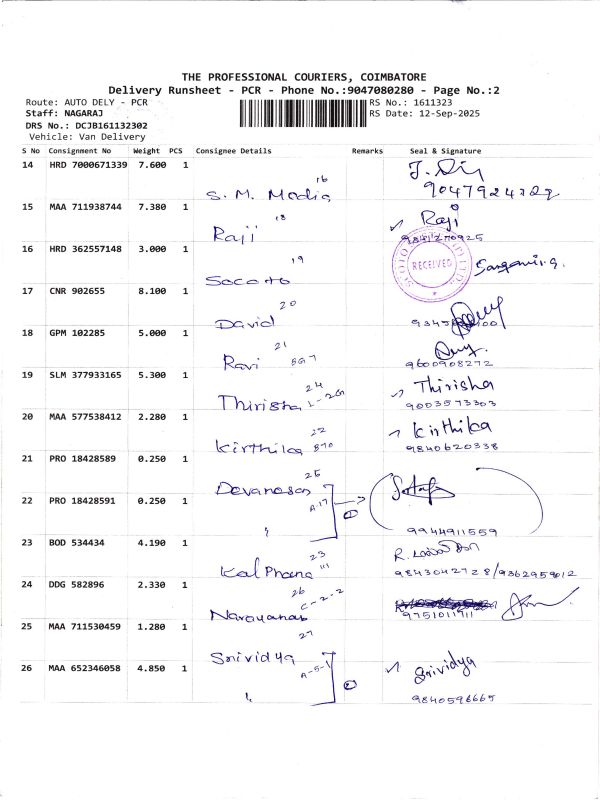 THE PROFESSIONAL COURIERS, COIMBATORE
Delivery Runsheet - PCR - Phone No.:9047080280 - Page No.:2
Route: AUTO DELY - PCR RS No.: 1611323
Staff: NAGARAJ RS Date: 12-Sep-2025
DRS No.: DCJB161132302
Vehicle: Van Delivery
S No Consignment No Weight PCS Consignee Details Remarks Seal & Signature
14 HRD 7000671339 7.600 1
16
S. M. Media
15 MAA 711938744 7.380 1 Raji
18
Raji
16 HRD 362557148 3.000 1 RECEIVED
19
Socoto
17 CNR 902655 8.100 1
20
David
18 GPM 102285 5.000 1
21
Ravi 9600908272
19 SLM 377933165 5.300 1 Thirisha
24
Thirisha 9003573303
20 MAA 577538412 2.280 1 Kirthika
22
Kirthika 9840620338
21 PRO 18428589 0.250 1
25
Devanesan
22 PRO 18428591 0.250 1 A-17
9944911559
23 BOD 534434 4.190 1
23
Kalphana 111 9843042728/9362959012
24 DDG 582896 2.330 1
26
C-2-2
Narayanan 9751011911
25 MAA 711530459 1.280 1
27
Srividya A-5-1
26 MAA 652346058 4.850 1 Srividya
9840596665